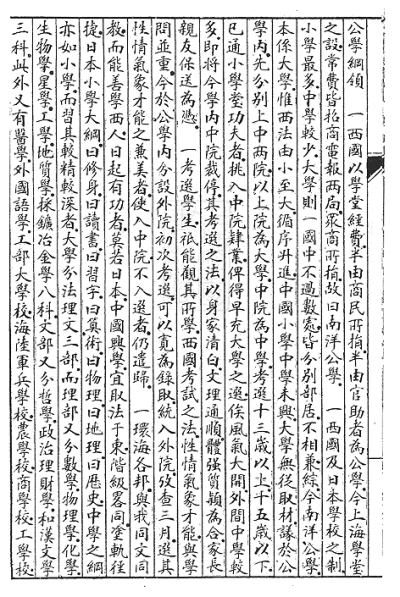 公學綱領　一西國以學堂經費半由商民所捐半由官助者為公學今上海學堂
之設常費皆招商電報兩局眾商所捐故曰南洋公學　一西國及日本學校之制
小學最多中學較少大學則一國中不過數處皆分別部居不相兼綜今南洋公學
本係大學惟西法由小至大循序升進中國小學中學未興大學無從取材議於公
學內先分別上中兩院以上院為大學中院為中學考選十三歲以上十五歲以下
已通小學堂功夫者挑入中院肄業俾得早充大學之選俟風氣大開外間中學較
多即將今學內中院裁停其考選之法以身家清白文理通順體强質穎為合家長
親友保送為憑　一考選學生祇能觀其所學西國考試之法性情氣象才能與學
問並重今於公學內分設外院初次考選可以寬為錄取統入外院攷查三月選其
性情氣象才能之兼美者使入中院不入選者仍遣歸　一環海各邦與我同文同
教而能善學西人日起有功者莫若日本中國興學宜取法于東階級畧同塗軌徑
捷日本小學大綱曰修身曰讀書曰習字曰算術曰物理曰地理曰歷史中學之綱
亦如小學而習其較精較深者大學分法理文三部而理部又分數學物理學化學
生物學星學工學地質學採鑛冶金學八科文部又分哲學政治理財學和漢文學
三科此外又有醫學外國語學工部大學校海陸軍兵學校農學校商學校工學校